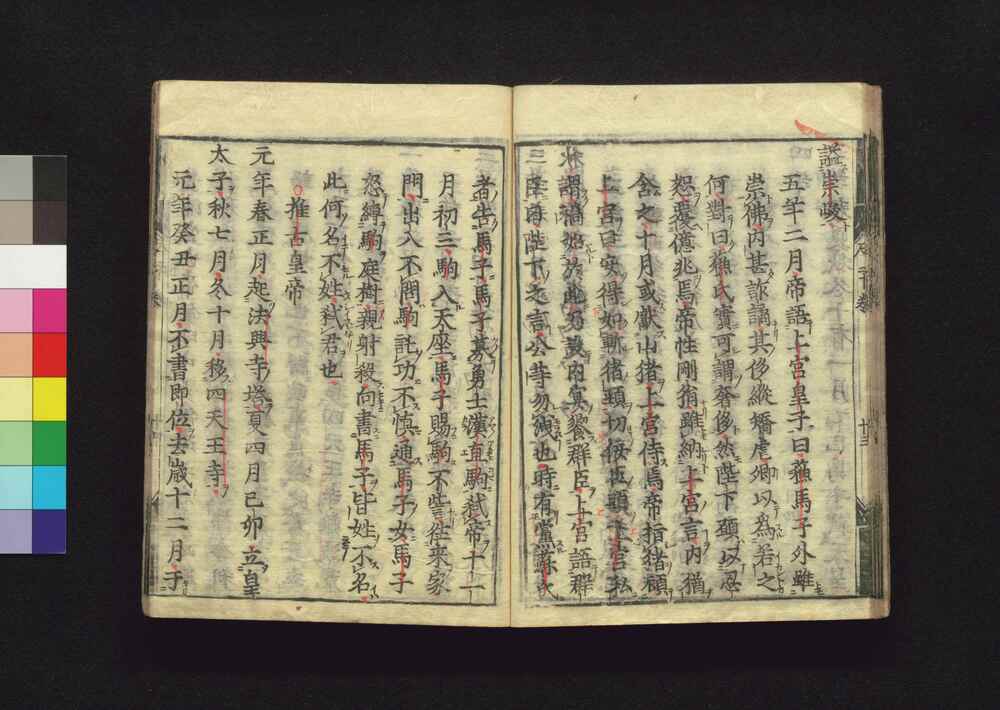 諡崇峻
五年二月帝語上宮皇子曰蘓馬子外雖
崇佛内甚詐謟其侈縱播虐卿以為若之
何對曰蘓氏實可謂奢侈然陛下願以忍
恕憂億兆焉帝性剛雖納上宮言内猶
念之十月或獻山猪上宮侍焉帝指猪頭
上宮曰安得如斬猪頭切佞臣頭上宮私
謂禍始於此乃設内宴饗群臣上宮語群
臣陛下之言公等勿泄也時有黨蘓氏
者告馬子馬子募勇士漢直駒弑帝十一
月初三駒入天座馬子賜駒不訾徃來家
門出入不問駒託功不慎通馬子女馬子
怒縛駒庭樹親射殺向書馬子皆姓不名
此何名不姓弑君也
推古皇帝
元年春正月起法興寺塔夏四月己卯立皇
太子秋七月冬十月移四天王寺
元年癸丑正月不書即位去歲十二月于